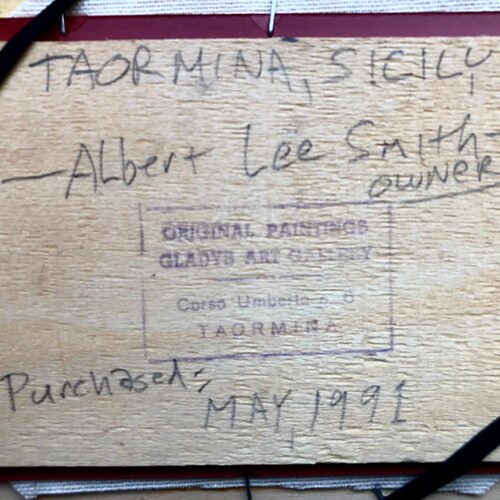 TAORMINA, SICILY
—Albert Lee Smith-
OWNER
ORIGINAL PAINTINGS
GLADYS ART GALLERY
Corso Umberto n. 6
TAORMINA
Purchased:
MAY, 1991